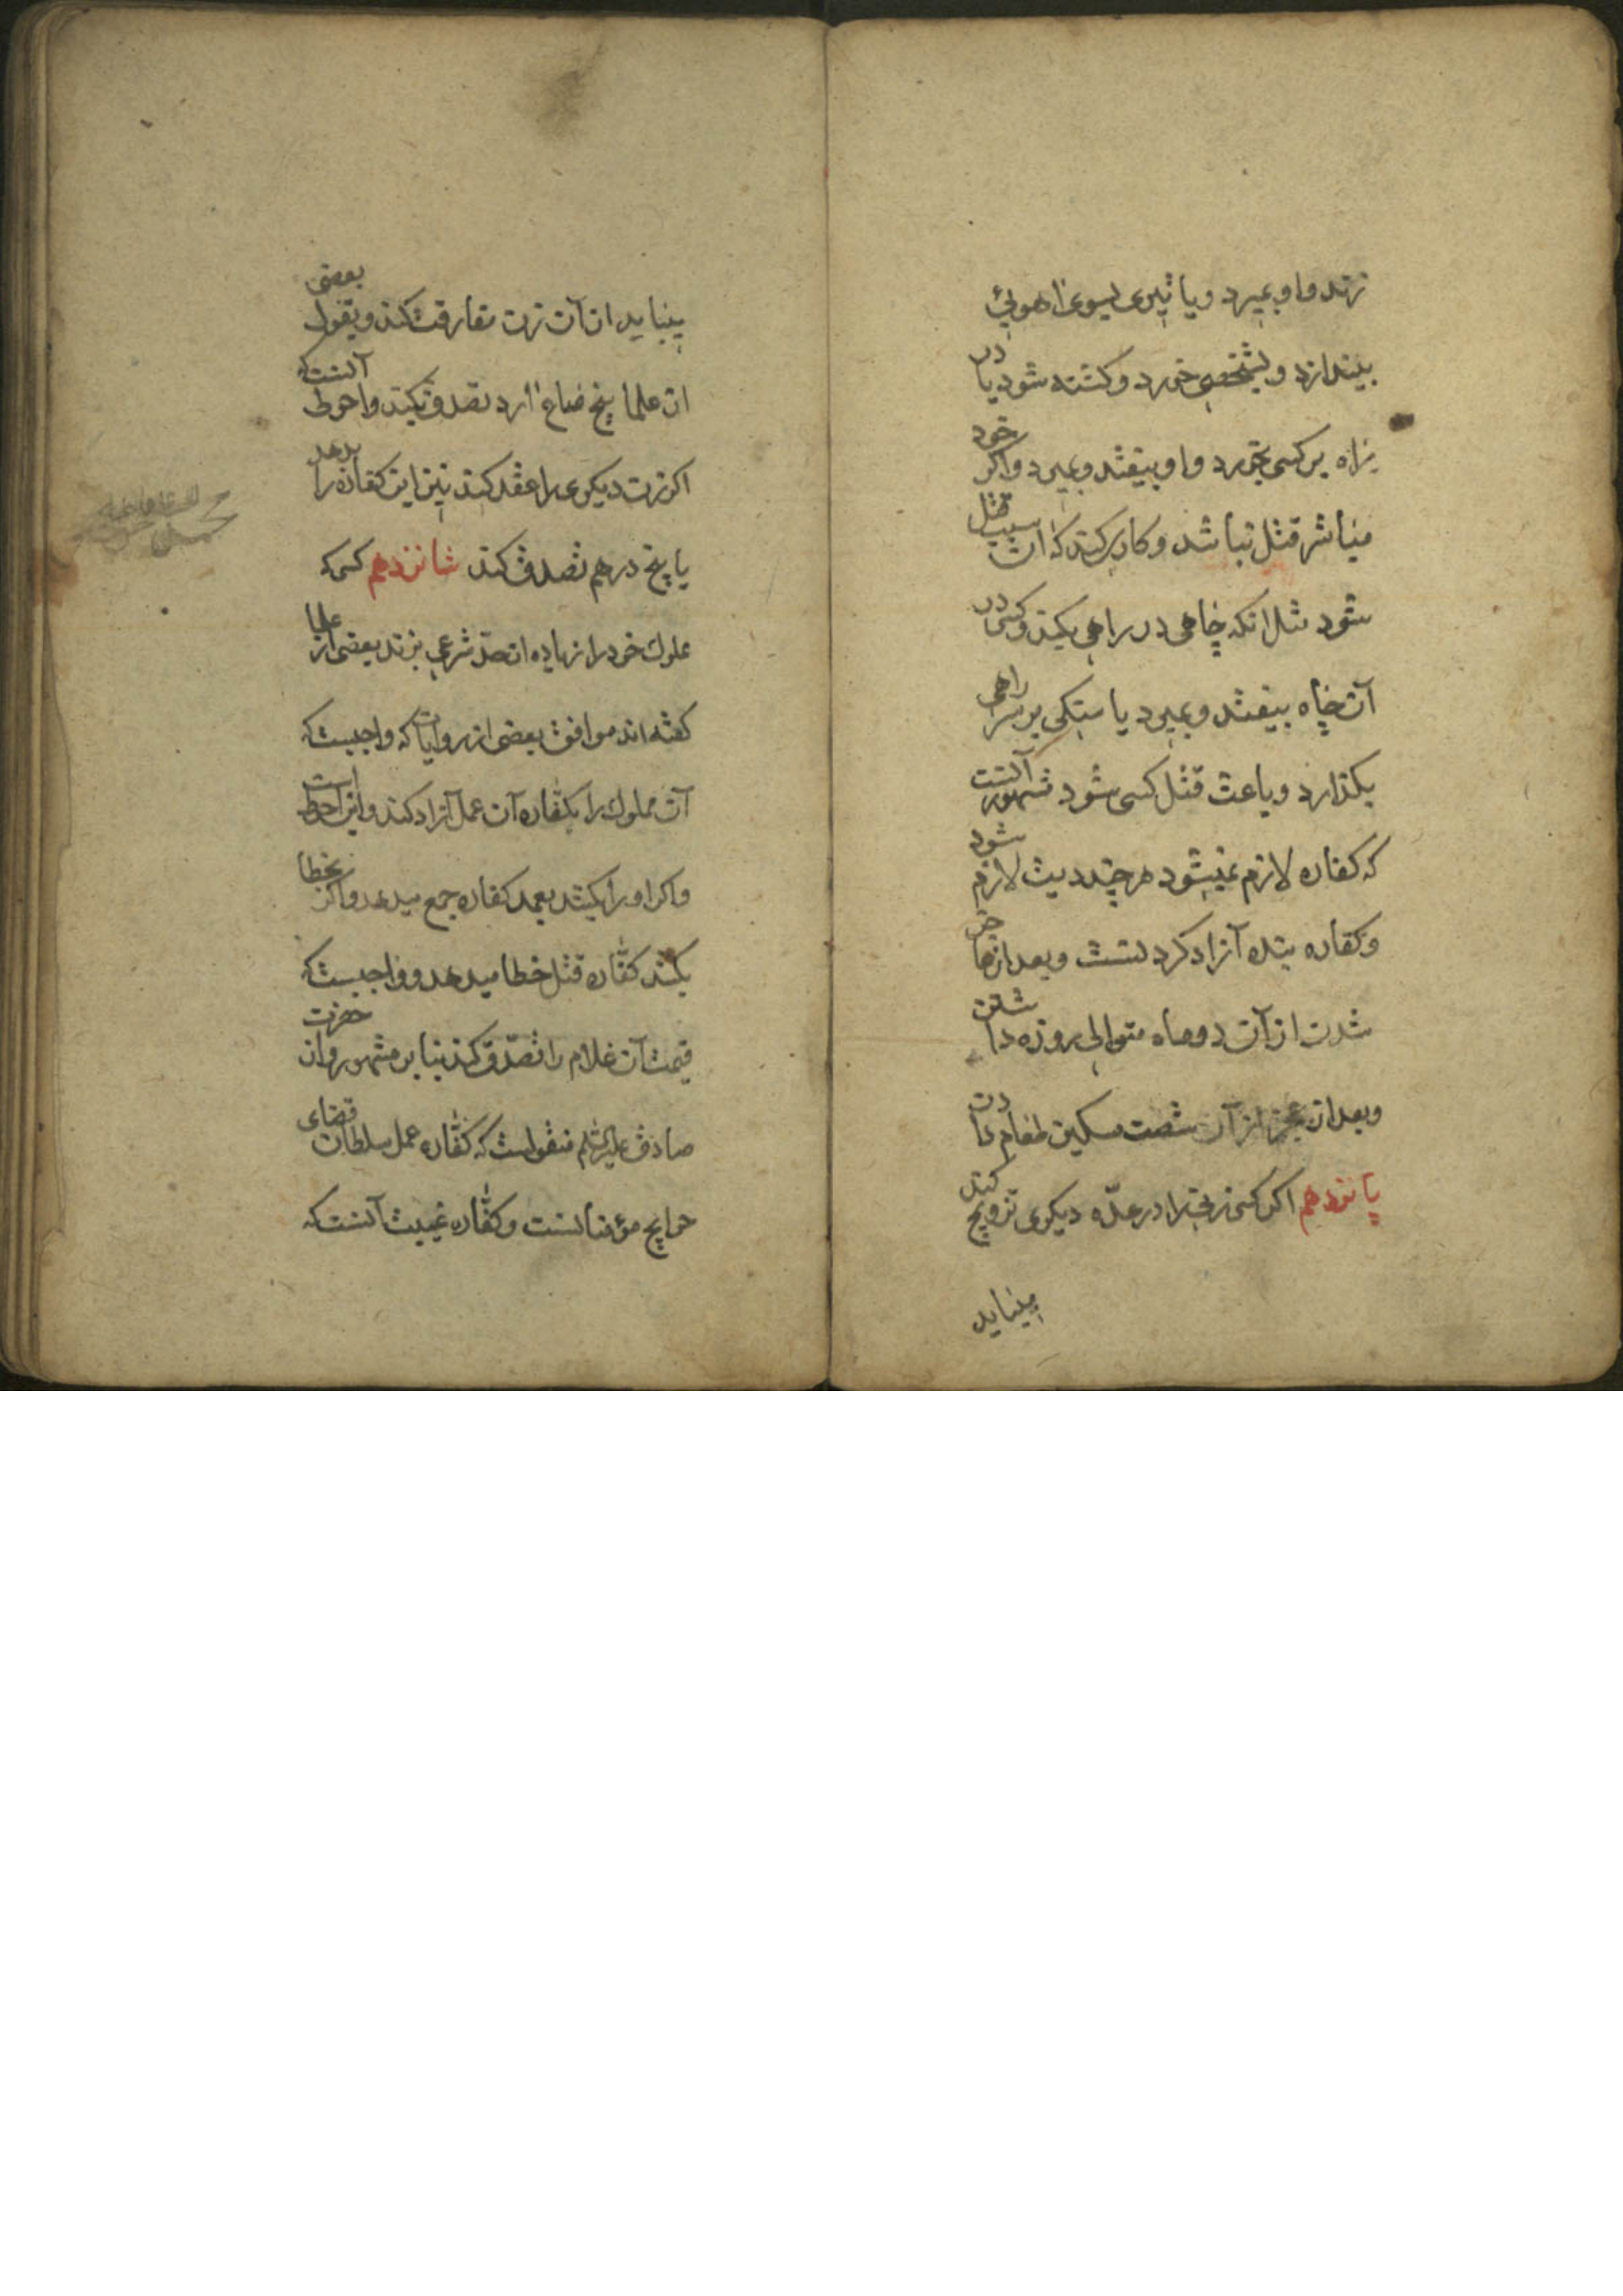 زند و او بمیرد و یا تیری بسوی آهوئی
بیندازد و بشخصی خورد و کشته شود یا در
راه بر کسی بخورد و او بیفتد و بمیرد و اگر خود
مباشر قتل نباشد و کار کند که آن سبب قتل
شود مثل انکه چاهی در راهی بکند و کسی در
آن چاه بیفتد و بمیرد یا سنگی بر سر راهی
بگذارد و باعث قتل کسی شود مشهور آنست
که کفاره لازم نمیشود هر چند دیت لازم شود
و کفاره بنده آزاد کردنست و بعد از عاجز
شدن از آن دو ماه متوالی روزه داشتن
و بعد از عجز از آن شصت مسکین طعام دادن
پانزدهم اگر کسی زنی را در عدّه دیگری تزویج کند
مینماید
مینماید از آن زن مفارقت کند و بقول بعضی
از علما پنج صاع آرد تصدق بکند و احوط آنست که
اگر زن دیگری را عقد کند نیز این کفاره را بدهد
یا پنج درهم تصدق کند شانزدهم کسی که
مملوک خود را زیاده از حدّ شرعی بزند بعضی از علما
گفته اند موافق بعضی از روایات که واجبست که
آن مملوک را بکفاره آن عمل آزاد کند و این احوط است
و اگر او را بکشد بعمد کفاره جمع میدهد و اگر بخطا
بکشد کفّاره قتل خطا میدهد و واجبست که
قیمت آن غلام را تصدّق کند بنا بر مشهور و از حضرت
صادق علیه السّلم منقولست که کفّاره عمل سلطان قضای
حوایج مؤمنانست و کفّاره غیبت آنست که